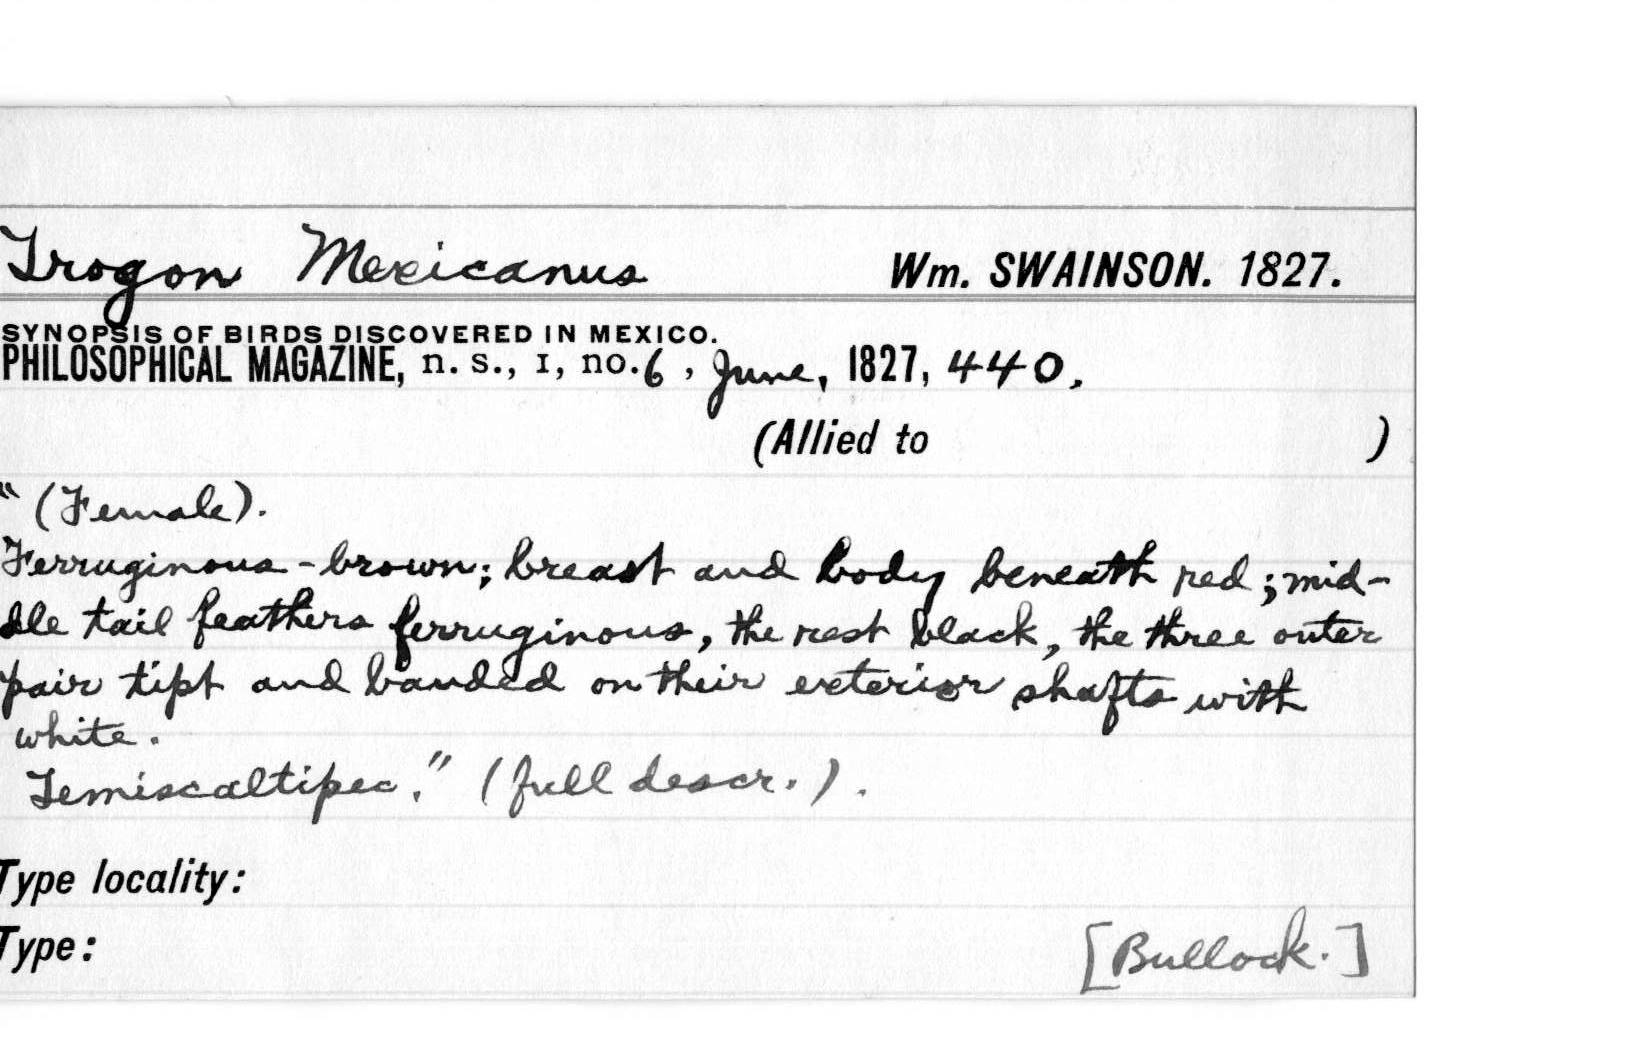 Trogon Mexicanus Wm. SWAINSON. 1827.
SYNOPSIS OF BIRDS DISCOVERED IN MEXICO.
PHILOSOPHICAL MAGAZINE, n. s., I, no. 6, June, 1827, 440.
(Allied to )
"(Female).
Ferruginous-brown; breast and body beneath red; mid-
dle tail feathers ferruginous, the rest black, the three outer
pair tipt and banded on their exterior shafts with
white.
Temiscaltipec." (full descr.).
Type locality:
Type: [Bullock.]